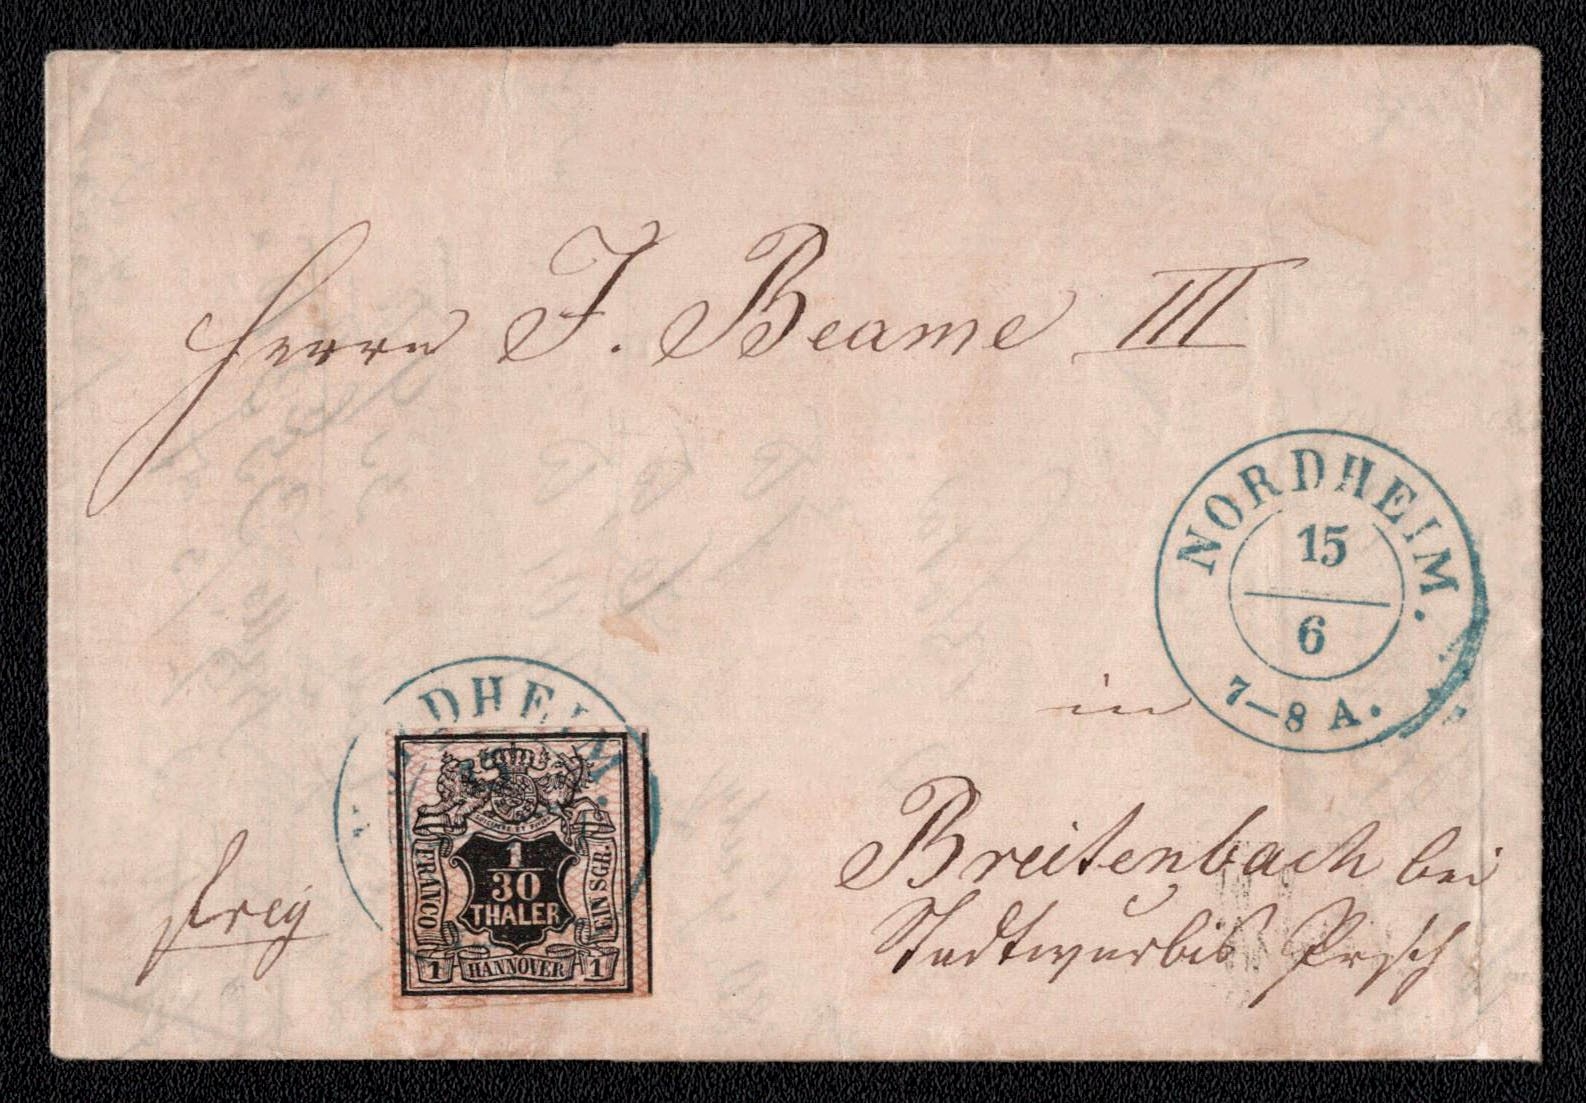 Herrn J. Beame III
NORDHEIM.
15
6
7–8 A.
in
DHEIM
Breitenbach bei
Stadtwurbis Prsch
frey
FRANCO
1
30
THALER
EIN SGR.
1 HANNOVER 1